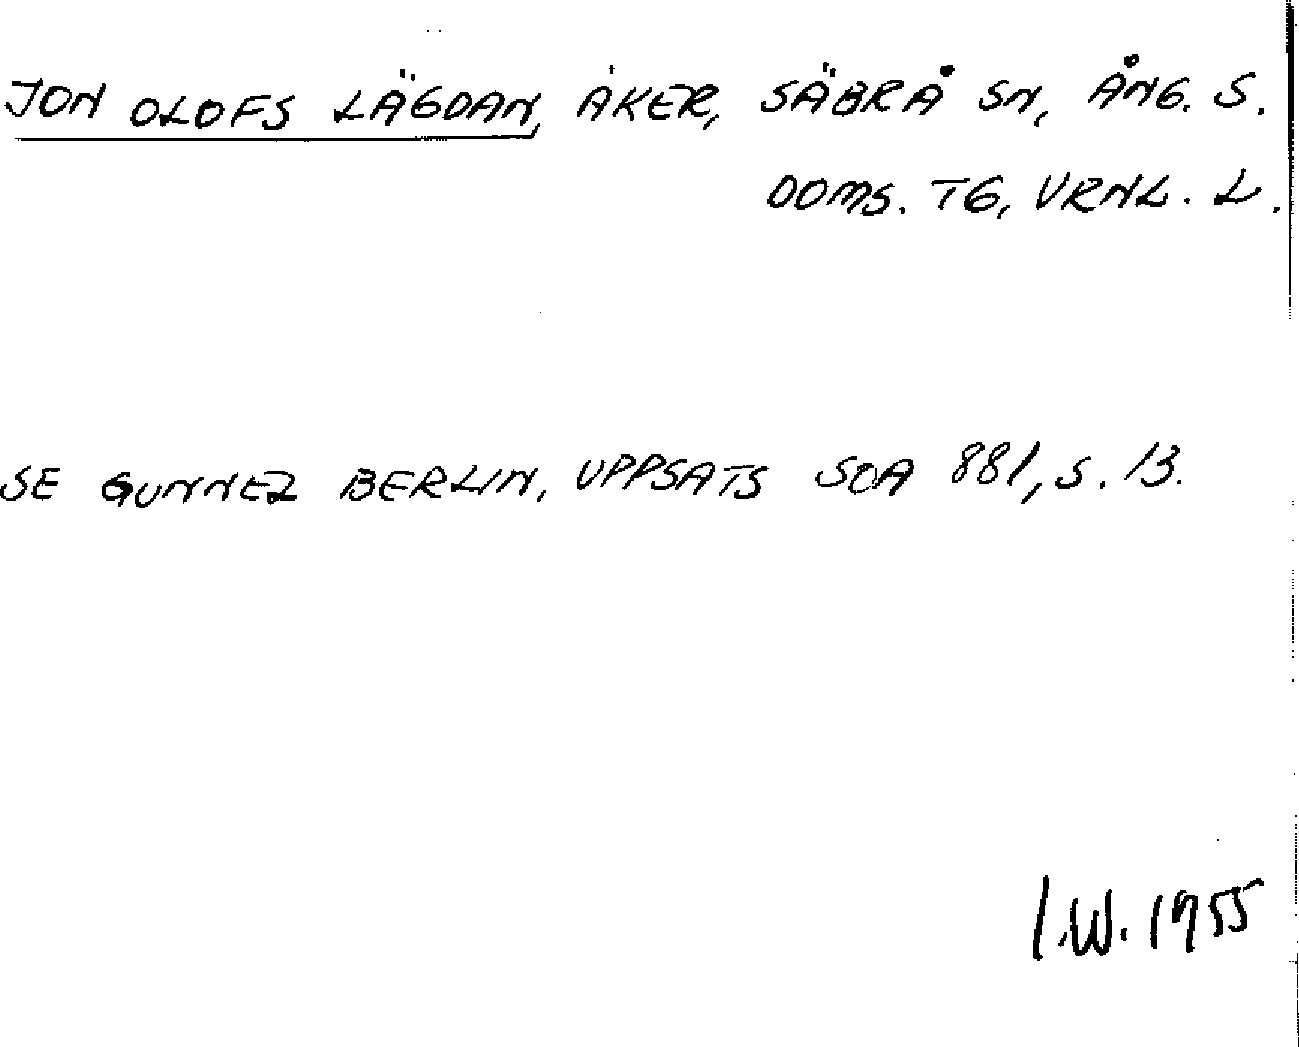 JON OLOFS LÄGDAN, ÅKER, SÄBRÅ SN, ÅNG. S.
DOMS. TG, VRNL. L.
SE GUNNEL BERLIN, UPPSATS SOA 881, S. 13.
I.W. 1955